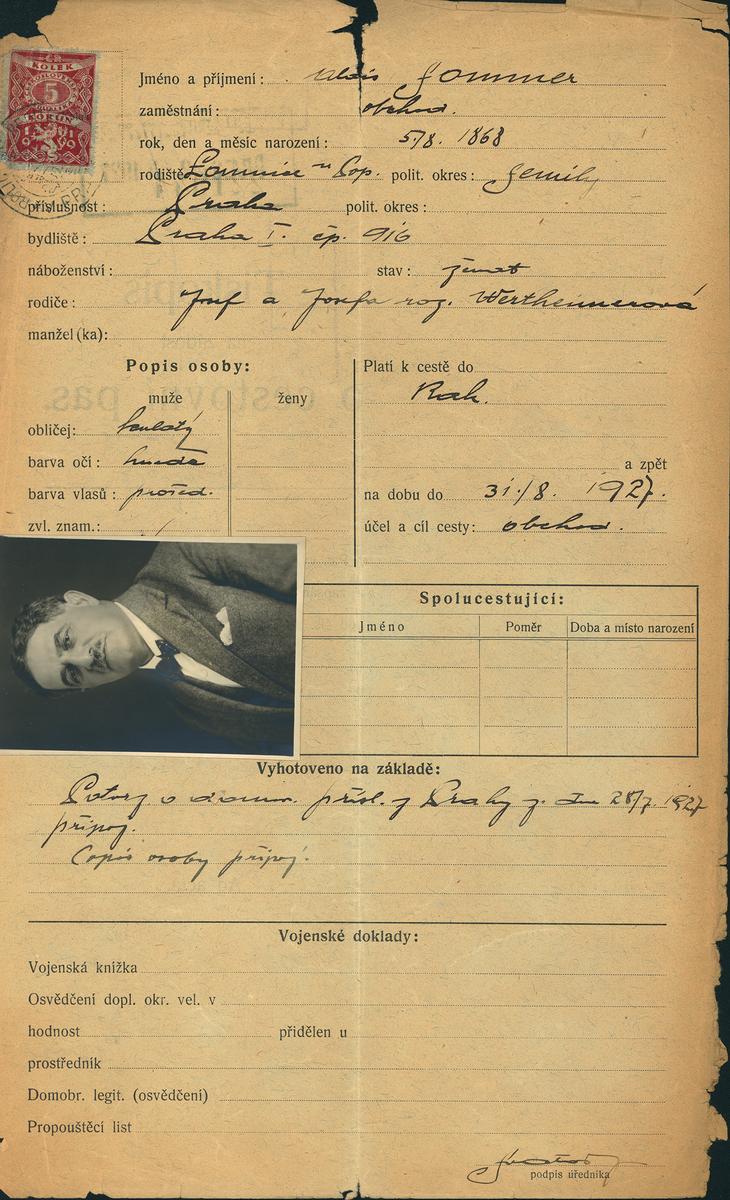 KOLEK
5
KORUN
1919
Jméno a příjmení: Alois Sommer
zaměstnání: obchod.
rok, den a měsíc narození: 5/8. 1868
rodiště: Lomnice n Pop. polit. okres: Semily
příslušnost: Praha polit. okres:
bydliště: Praha I. čp. 916
náboženství: stav: ženat
rodiče: Josef a Josefa roz. Wertheimerová
manžel (ka):
Popis osoby:
muže ženy
obličej: kulatý
barva očí: hnědá
barva vlasů: prošed.
zvl. znam.:
Platí k cestě do
Rak.
a zpět
na dobu do 31./8. 1927.
účel a cíl cesty: obchod.
Spolucestující:
Jméno Poměr Doba a místo narození
Vyhotoveno na základě:
Potvrz o domov. přísl. z Prahy z. dne 28/7. 1927
připoj.
Popis osoby připoj.
Vojenské doklady:
Vojenská knížka
Osvědčení dopl. okr. vel. v
hodnost přidělen u
prostředník
Domobr. legit. (osvědčení)
Propouštěcí list
podpis úředníka